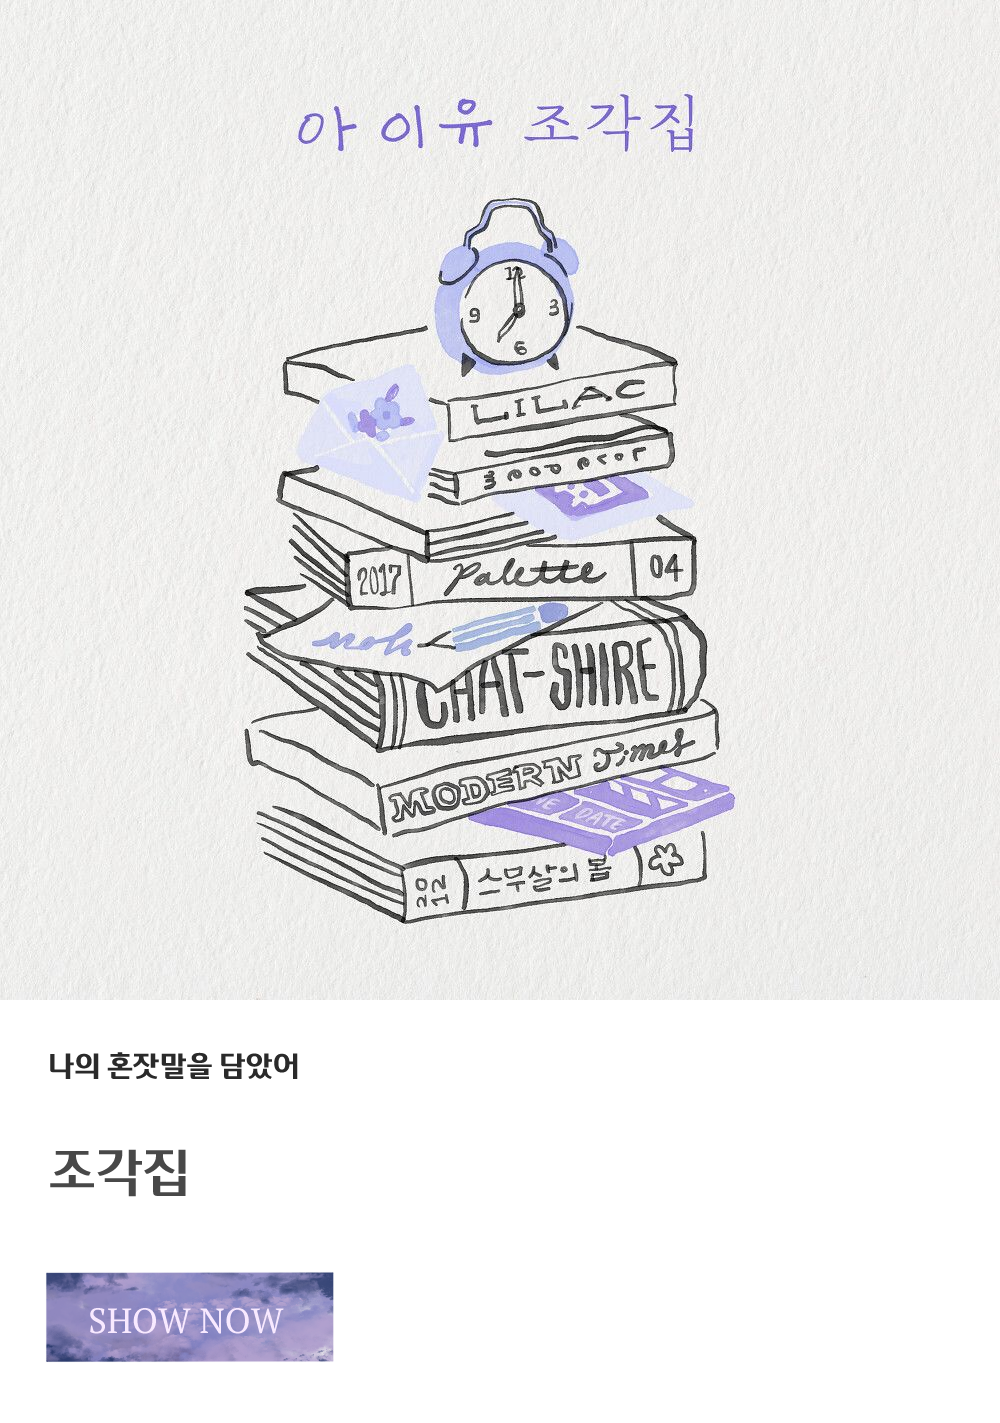 아이유 조각집
12
9 3
6
LILAC
Love poem
2017 Palette 04
CHAT-SHIRE
MODERN Times
DATE
2012 스무살의 봄
나의 혼잣말을 담았어
조각집
SHOW NOW